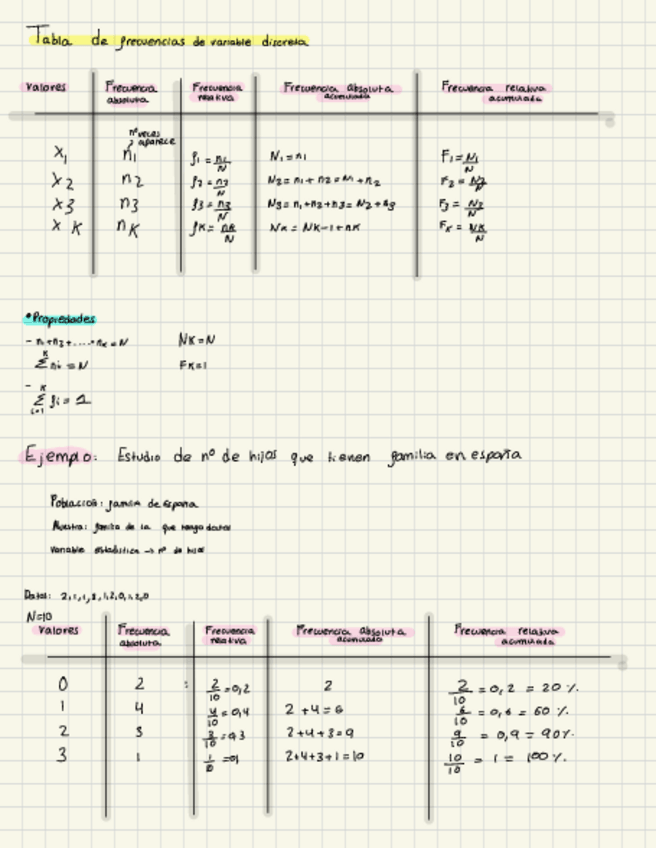 Tabla de frecuencias de variable discreta
Valores Frecuencia absoluta Frecuencia relativa Frecuencia absoluta acumulada Frecuencia relativa acumulada
nº veces aparece
x1 n1 f1 = n1/N N1 = n1 F1 = N1/N
x2 n2 f2 = n2/N N2 = n1 + n2 = N1 + n2 F2 = N2/N
x3 n3 f3 = n3/N N3 = n1 + n2 + n3 = N2 + n3 F3 = N3/N
x K nK fK = nK/N NK = NK-1 + nK FK = NK/N
• Propiedades
- n1+n2+.....+nK = N NK = N
K Σ ni = N FK = 1
- K Σ i=1 fi = 1
Ejemplo: Estudio de nº de hijos que tienen familia en españa
Población: familia de España
Muestra: familia de la que tengo datos
Variable estadística → nº de hijos
Datos: 2,1,1,3,1,2,0,1,2,0
N=10
Valores Frecuencia absoluta Frecuencia relativa Frecuencia absoluta acumulada Frecuencia relativa acumulada
0 2 2/10 = 0,2 2 2/10 = 0,2 = 20 %
1 4 4/10 = 0,4 2 + 4 = 6 6/10 = 0,6 = 60 %.
2 3 3/10 = 0,3 2+4+3 = 9 9/10 = 0,9 = 90%.
3 1 1/10 = 0,1 2+4+3+1 = 10 10/10 = 1 = 100 %.